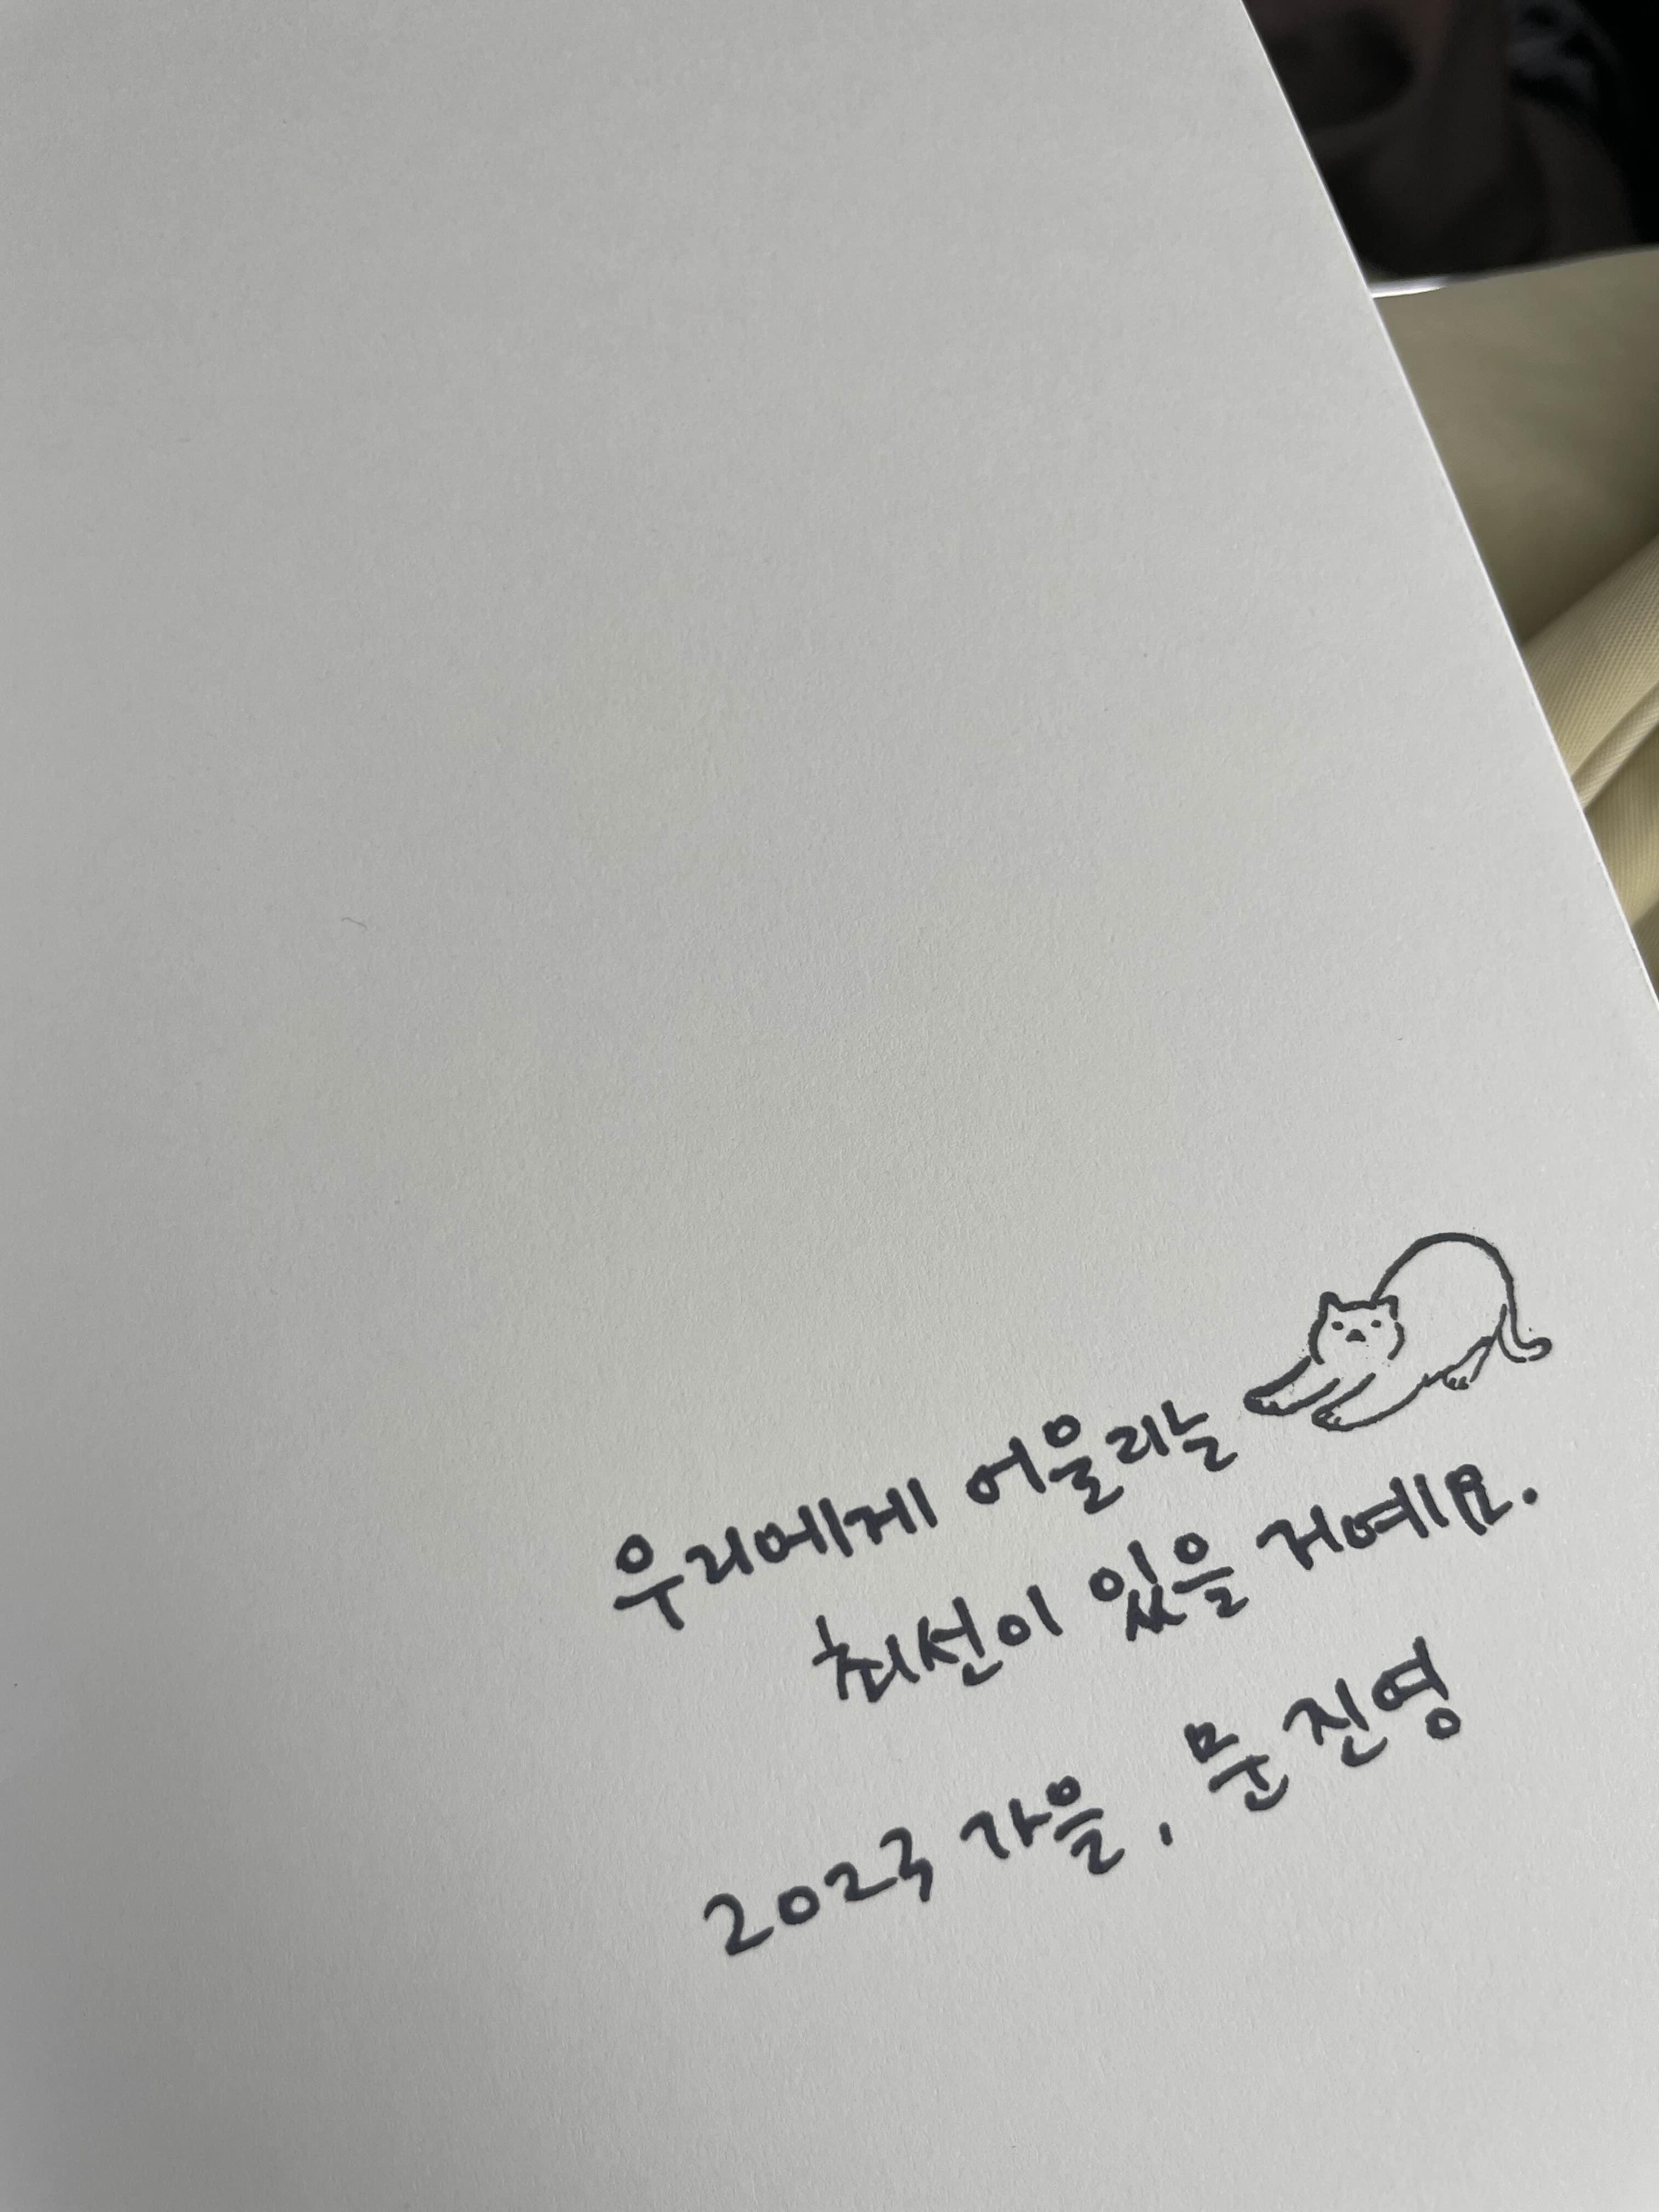 우리에게 어울리는
최선이 있을 거예요.
2023 가을, 문진영